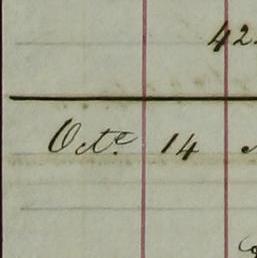 42
Octe. 14